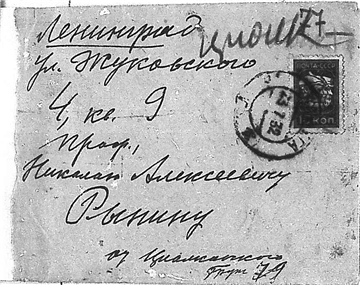 Ленинград
ул. Жуковского
4, кв. 9
Проф.
Николаю Алексеевичу
Рынину
от Циолковского
77
79
коп